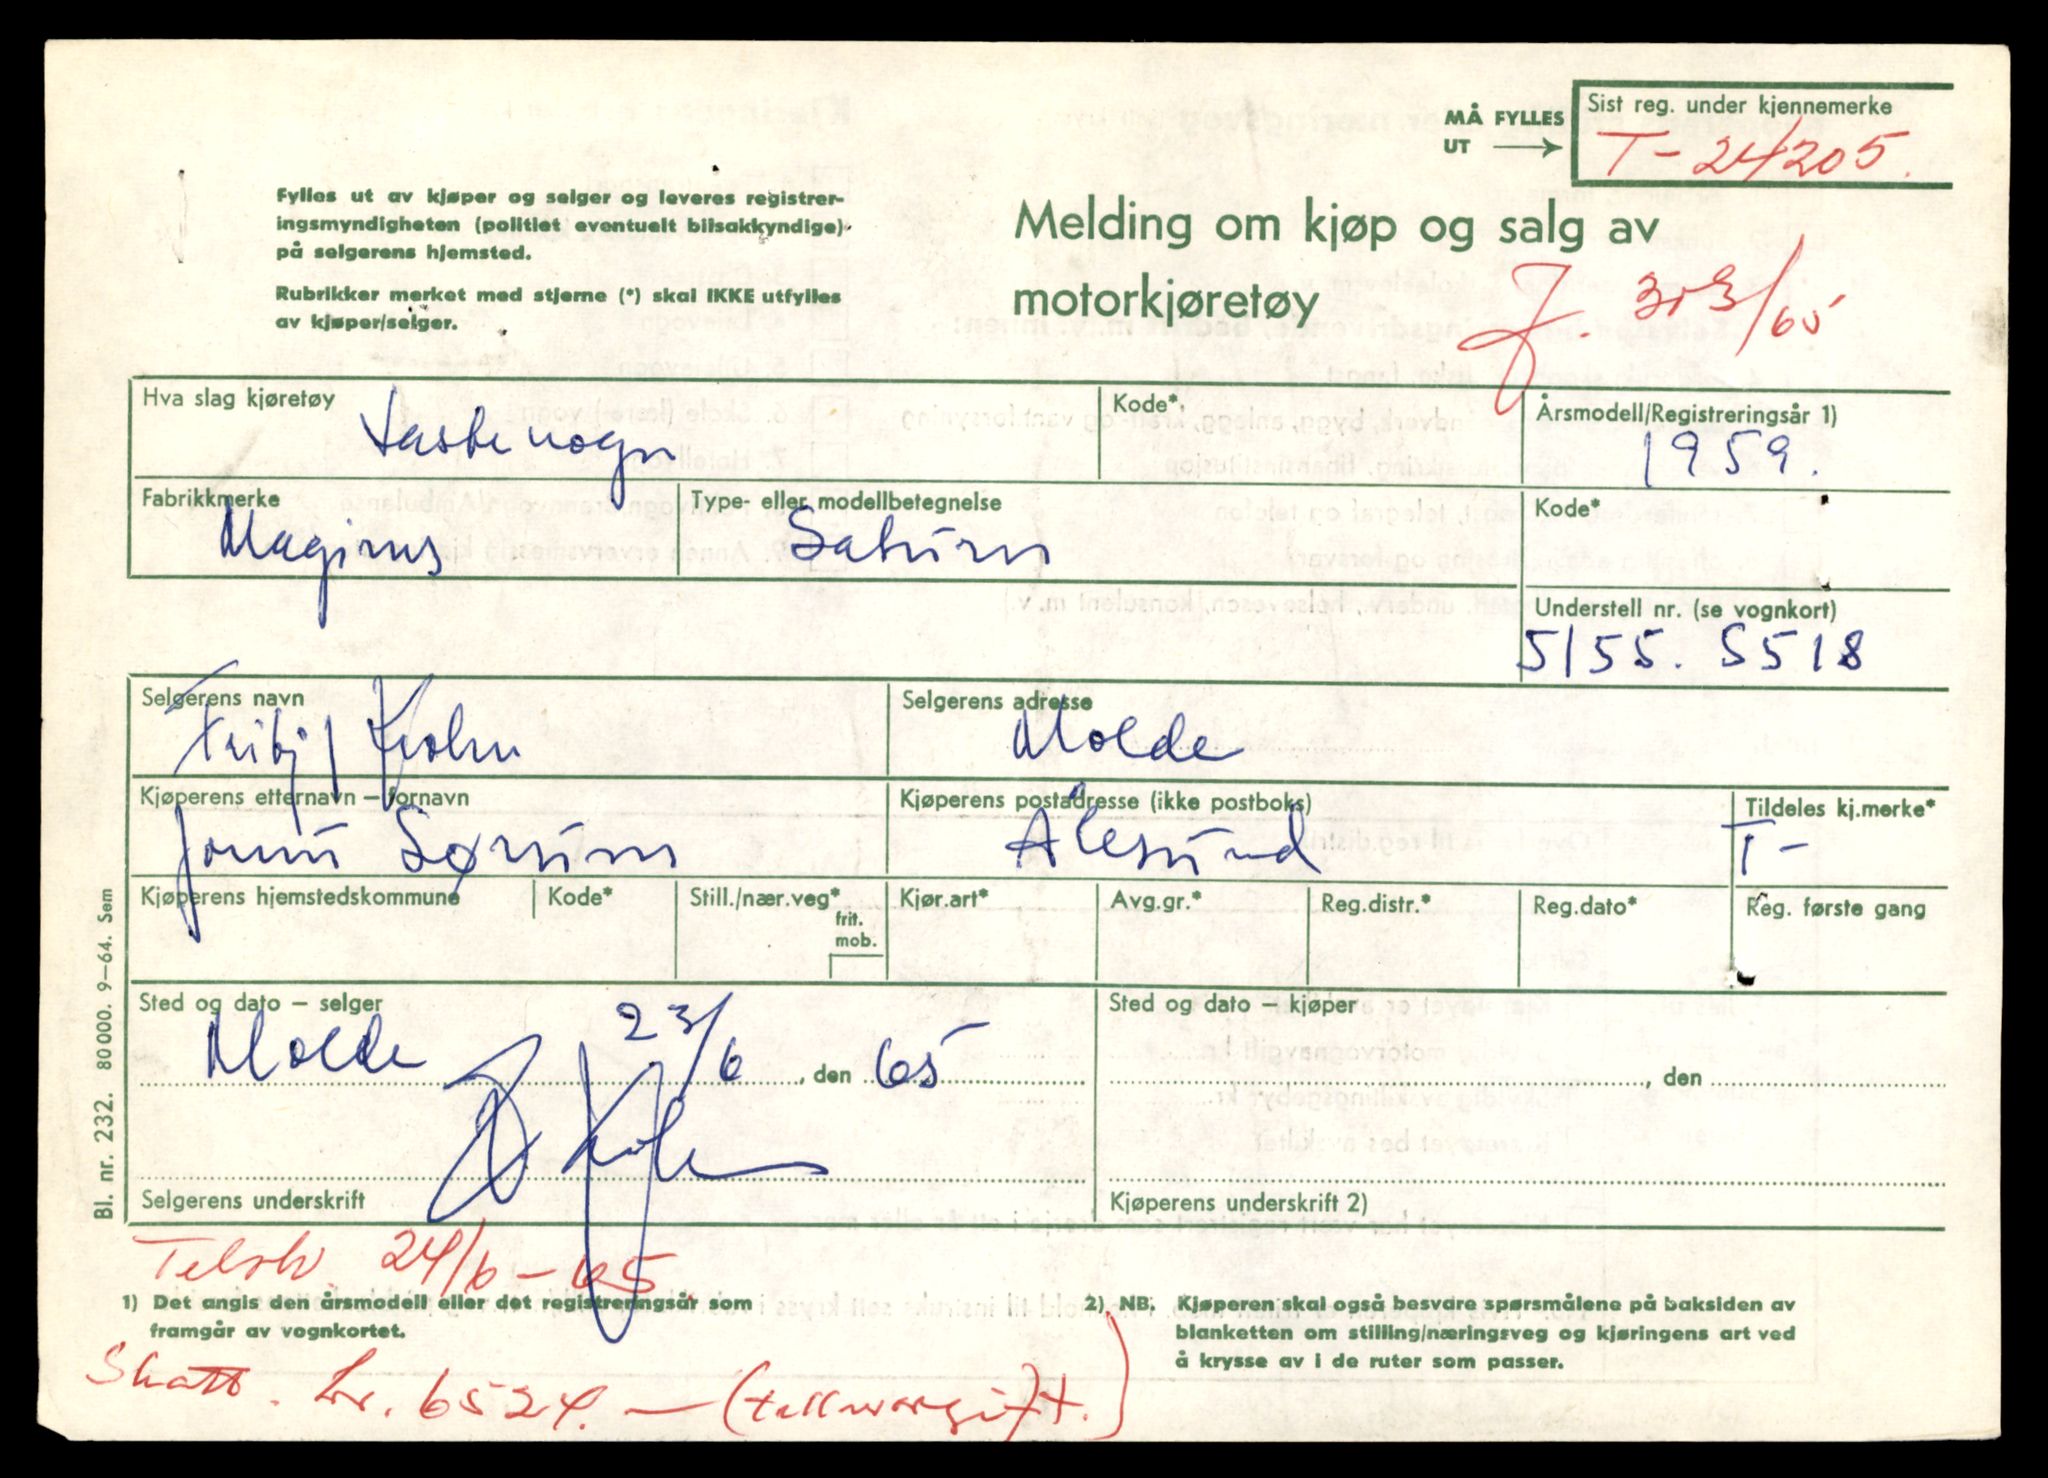 MÅ FYLLES
UT
Sist reg. under kjennemerke
T-24205.
Fylles ut av kjøper og selger og leveres registrer-
ingsmyndigheten (politiet eventuelt bilsakkyndige)
på selgerens hjemsted.
Rubrikker merket med stjerne (*) skal IKKE utfylles
av kjøper/selger.
Melding om kjøp og salg av
motorkjøretøy
J. 313/65
Hva slag kjøretøy
Lastevogn
Kode*
Årsmodell/Registreringsår 1)
1959.
Fabrikkmerke
Magirus
Type- eller modellbetegnelse
Saturn
Kode*
Understell nr. (se vognkort)
5155. 5518
Selgerens navn
Fritjof Krohn
Selgerens adresse
Molde
Kjøperens etternavn – fornavn
Sørum
Kjøperens postadresse (ikke postboks)
Ålesund
Tildeles kj.merke*
T-
Kjøperens hjemstedskommune
Kode*
Still./nær.veg*
frit.
mob.
Kjør.art*
Avg.gr.*
Reg.distr.*
Reg.dato*
Reg. første gang
Sted og dato – selger
Molde 23/6, den 65
Sted og dato – kjøper
, den
Selgerens underskrift
Kjøperens underskrift 2)
Bl. nr. 232. 80 000. 9–64. Sem
24/6-65
1) Det angis den årsmodell eller det registreringsår som
framgår av vognkortet.
2) NB. Kjøperen skal også besvare spørsmålene på baksiden av
blanketten om stilling/næringsveg og kjøringens art ved
å krysse av i de ruter som passer.
kr. 6524.